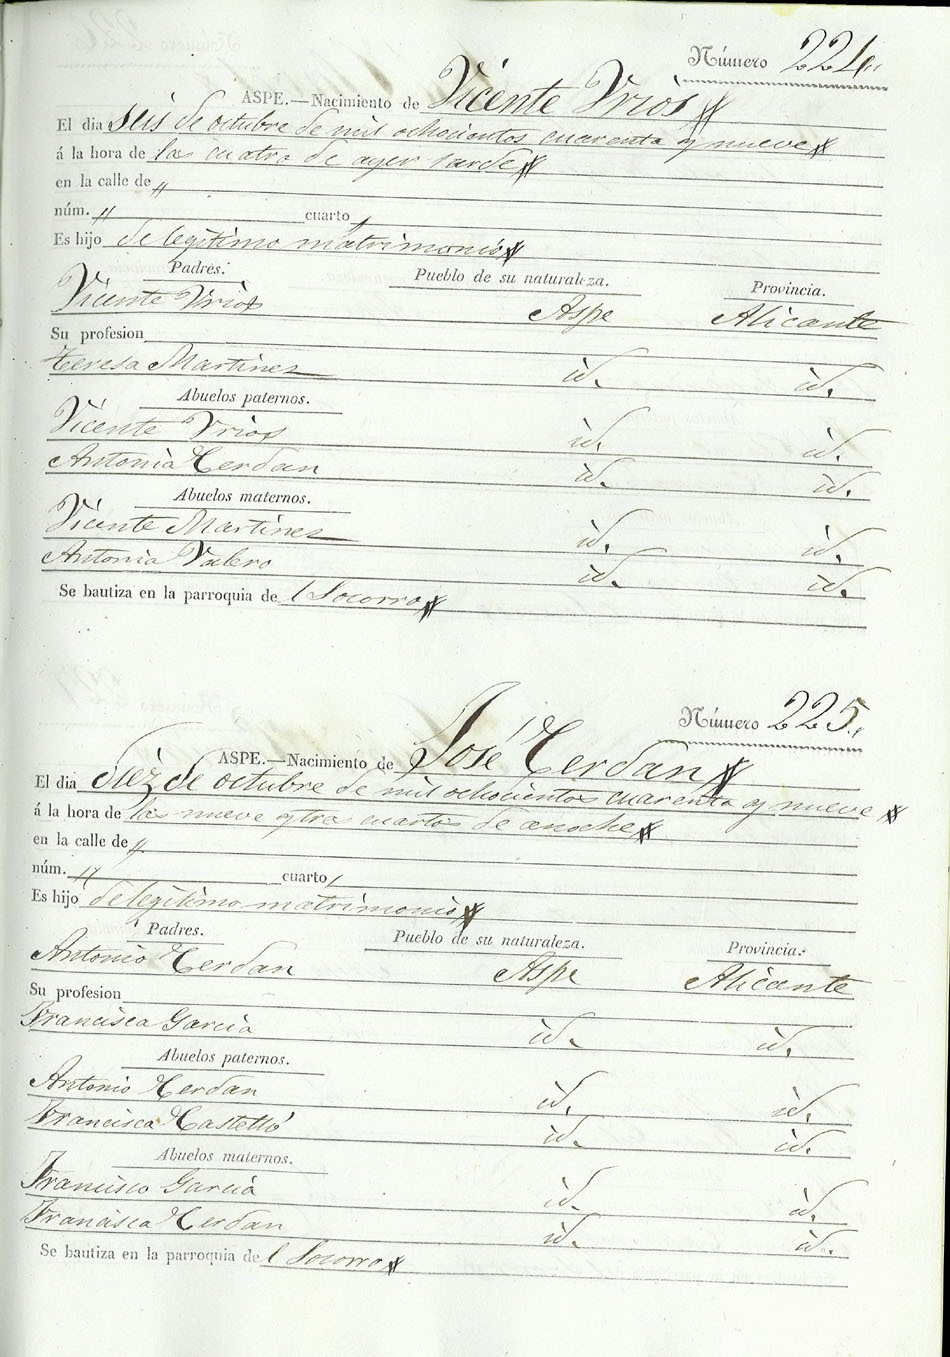 Número 224.
ASPE.—Nacimiento de Vicente Vrios
El dia seis de octubre de mil ochocientos cuarenta y nueve
á la hora de las cuatro de ayer tarde
en la calle de "
núm. " cuarto "
Es hijo de legítimo matrimonio
Padres. Pueblo de su naturaleza. Provincia.
Vicente Vrios Aspe Alicante
Su profesion
Teresa Martinez id. id.
Abuelos paternos.
Vicente Vrios id. id.
Antonia Cerdan id. id.
Abuelos maternos.
Vicente Martinez id. id.
Antonia Valero id. id.
Se bautiza en la parroquia de l Socorro
Número 225.
ASPE.—Nacimiento de José Cerdan
El dia diez de octubre de mil ochocientos cuarenta y nueve
á la hora de las nueve y tres cuartos de anoche
en la calle de "
núm. " cuarto "
Es hijo de legítimo matrimonio
Padres. Pueblo de su naturaleza. Provincia.
Antonio Cerdan Aspe Alicante
Su profesion
Francisca Garcia id. id.
Abuelos paternos.
Antonio Cerdan id. id.
Francisca Castelló id. id.
Abuelos maternos.
Francisco Garcia id. id.
Francisca Cerdan id. id.
Se bautiza en la parroquia de l Socorro